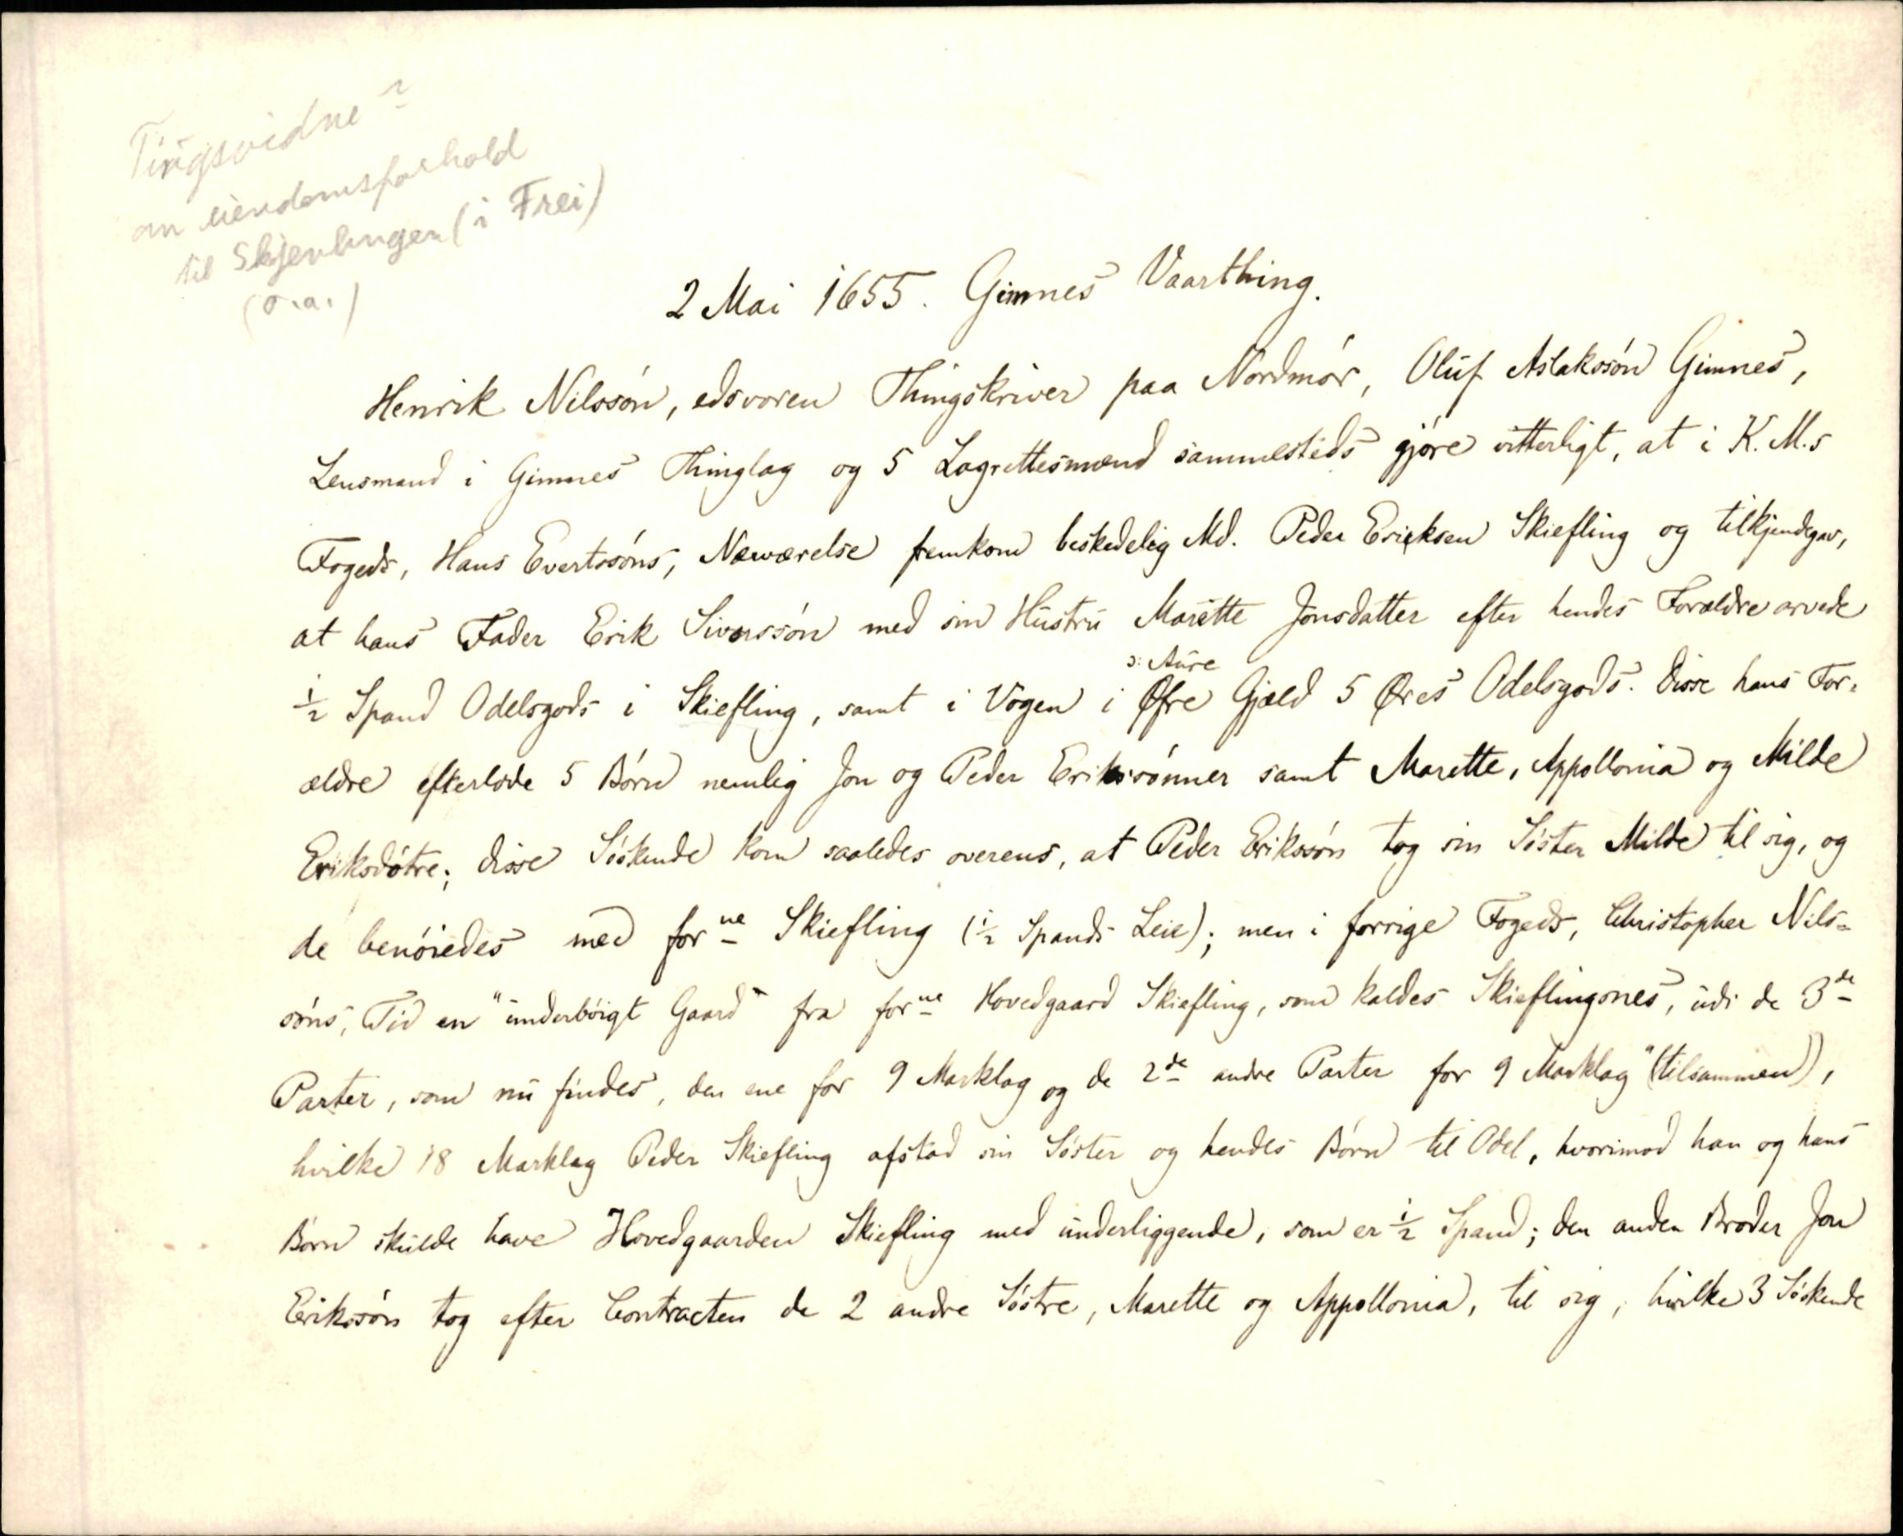 Tingsvidne?
om eiendomsforhold
til Skjevlingen (i Frei)
(o.a.)
2 Mai 1655. Gimnes Vaarthing.
Henrik Nilssön, edsvoren Thingskriver paa Nordmör, Oluf Aslakssön Gimnes,
Lensmand i Gimnes Thinglag og 5 Lagrettesmænd sammesteds gjöre vitterligt, at i K. M.s
Fogeds, Hans Evertssöns, Nærværelse fremkom beskedelig Md. Peder Eriksen Skiefling og tilkjendgav,
at hans Fader Erik Siverssön med sin Hustru Marette Jonsdatter efter hendes Forældre arvede
ɔ: Aure
½ Spand Odelsgods i Skiefling, samt i Vögen i Øfre Gjæld 5 Øres Odelsgods. Disse hans For-
ældre efterlode 5 Börn nemlig Jon og Peder Erikssönner samt Marette, Appollonia og Milde
Eriksdötre; disse Söskende kom saaledes overens, at Peder Erikssön tog sin Söster Milde til sig, og
de benöiedes med for<u>ne</u> Skiefling (½ Spands Leie); men i forrige Fogeds, Christopher Nils-
söns, Tid en "underböigt Gaard fra for<u>ne</u> Hovedgaard Skiefling, som kaldes Skieflingsnes, udi de 3de
Parter, som nu findes, den ene for 9 Marklag og de 2de andre Parter for 9 Marklag" (tilsammen),
hvilke 18 Marklag Peder Skiefling afstod sin Söster og hendes Börn til Odel, hvorimod han og hans
Börn skulde have Hovedgaarden Skiefling med underliggende, som er ½ Spand; den anden Broder Jon
Erikssön tog efter Contracten de 2 andre Söstre, Marette og Appollonia, til sig, hvilke 3 Söskende